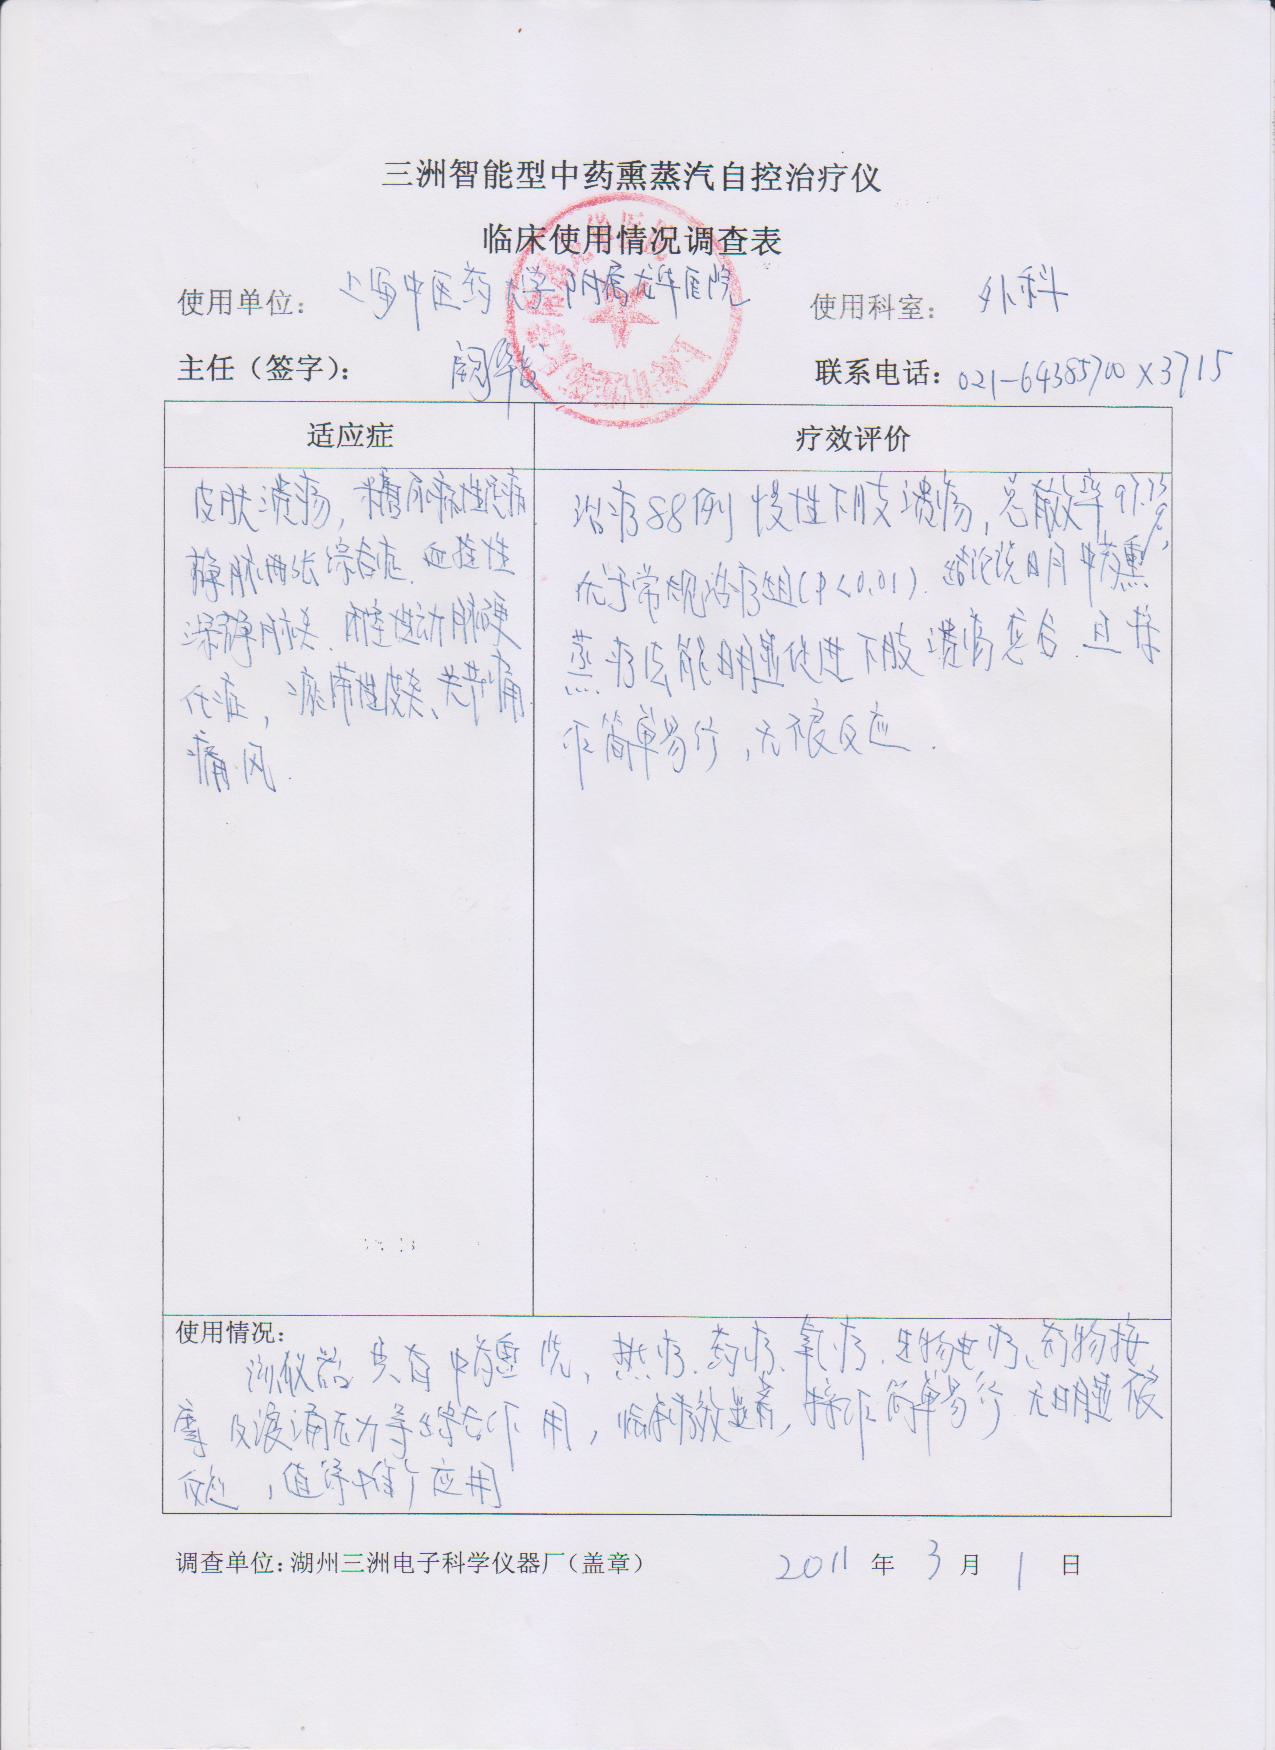 三洲智能型中药熏蒸汽自控治疗仪
临床使用情况调查表
使用单位： 上海中医药大学附属龙华医院 使用科室： 外科
主任（签字）： 阙华发 联系电话：021-64385700×3715
适应症 疗效评价
皮肤溃疡，糖尿病性足病
静脉曲张综合症、血栓性
深静脉炎、闭塞性动脉硬
化症，淤滞性皮炎、关节痛
痛风.
治疗88例慢性下肢溃疡，总有效率97.73%，
优于常规治疗组（P<0.01）. 结论说明中药熏
蒸疗法能明显促进下肢溃疡愈合，且操
作简单易行，无不良反应.
使用情况：
该仪器具有中药熏洗、热疗、药疗、氧疗、生物电疗、药物按
摩及波涌压力等综合作用，临床疗效显著，操作简单易行 无明显不良
反应，值得推广应用
调查单位：湖州三洲电子科学仪器厂（盖章） 2011 年 3 月 1 日